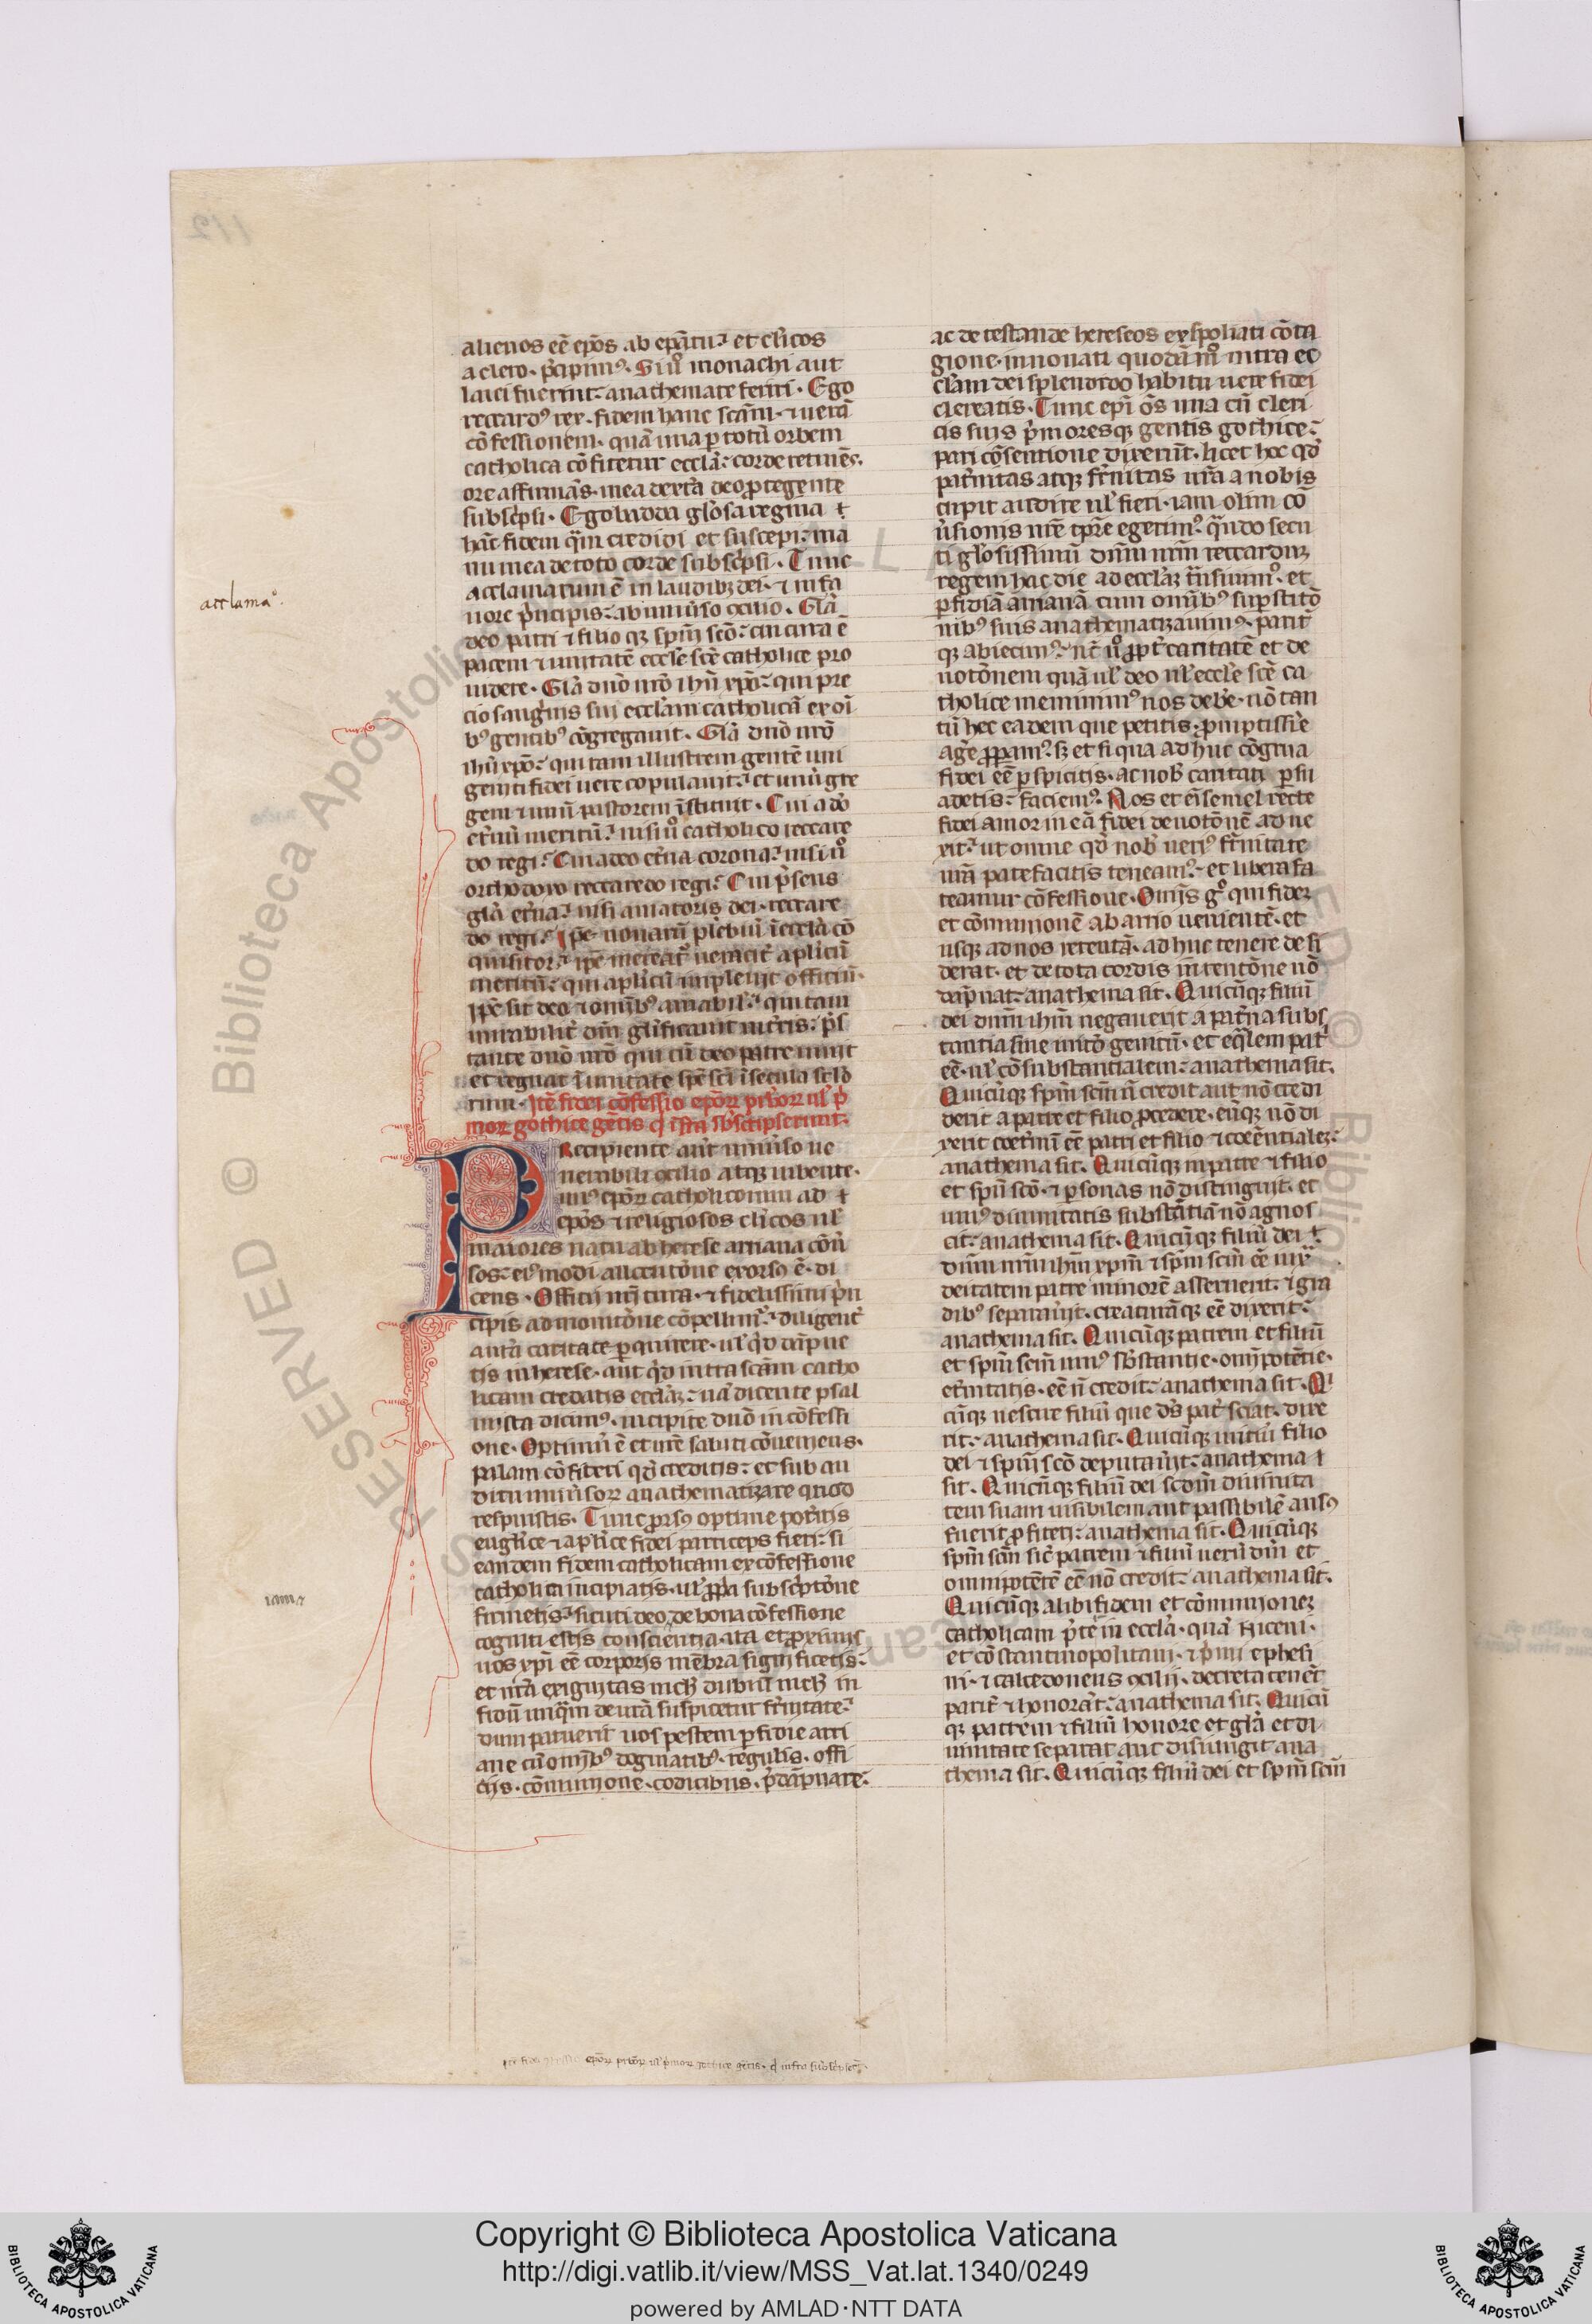 acclama⁹.
alienos eē ep̄os ab ep̄atu: et cl̓icos
a clero p̄cipim⁹. Si ū monachi aut
laici fuerint: anathemate feriri. Ego
reccard⁹ rex. fidem hanc sc̄am ⁊ uerā
cōfessionem. quā una p totū orbem
catholica cōfitetur eccl̄a: corde retinēs.
ore affirmās. mea dextra deo ꝓtegente
subscpsi. Ego badda gl̓osa regina
hāc fidem q̄m credidi et suscepi: ma
nu mea de toto corde subscpsi. Tunc
acclamatum ē in laudibꝫ dei. ⁊ in fa
uore p̄ncipis: ab uniu̓so ꝯcilio. Gl̓a
deo patri ⁊ filio qꝫ sp̄ui sc̄o: cui cura ē
pacem ⁊ unitatē eccl̓e sc̄e catholice pro
uidere. Gl̓a dn̄o nr̄o ih̄u xp̄o: qui pre
cio sanguinis sui eccl̓am catholicā ex oī
b⁹ gentib⁹ cōgregauit. Gl̓a dn̄o nr̄o
ih̄u xp̄o: qui tam illustrem gentē uni
geniti fidei uere copulauit: et unū gre
gem ⁊ unū pastorem īstituit. Cui a dō
et̓nū meritū: nisi ū catholico reccare
do regi: Cui a deo et̓na corona: nisi ū
orthodoxo reccaredo regi: Cui p̄sens
gl̓a et̓na: nisi amatoris dei. reccare
do regi: Ipse nouarū plebiū ī eccl̓a cō
quisitor: ip̄e mereat̓ ueracit̓ apl̓icū
meritū: qui apl̓icū impleuit officiū.
Ip̄e sit deo ⁊ omīb⁹ amabil̓: qui tam
mirabilit̓ dm̄ gl̓ificauit in t̓ris: p̄s
tante dn̄o nr̄o qui cū deo patre uiuit
et regnat ī unitate sp̄c sc̄i ī secula sc̄lo
rum. Itē fidei cōfessio ep̄oꝝ p̄rb̓oꝝ ul̓ p̄
moꝝ gothice gētis q̄ īfra sb̓scripserunt.
Precipiente aut̄ uniu̓so ue
nerabili ꝯcilio atqꝫ iubente.
un⁹ ep̄oꝝ catholicorum ad
ep̄os ⁊ religiosos cl̓icos ul̓
maiores natu ab herese arriana cōu̓
sos: ei⁹modi allocutōne exors⁹ ē. di
cens. Officii nr̄i cura. ⁊ fidelissimi p̄n
cipis admonitōne cōpellim̓: diligent̓
a ur̄a caritate ꝑquirere. ul̓ qd̓ dāpne
tis in herese. aut qd̓ intra sc̄am catho
licam credatis eccl̓aꝫ: na dicente psal
mista dicim⁹. incipite dn̄o in cōfessi
one. Optimū ē et ur̄e saluti cōueniens.
palam cōfiteri qd̓ creditis: et sub au
ditu uniu̓soꝝ anathematizare quod
respuistis. Tunc ꝓrs⁹ optime pot̓itis
eugl̓ice ⁊ apl̓ice fidei particeps fieri: si
eandem fidem catholicam ex cōfessione
catholica incipiatis. ul̓ ꝓp̄a subsc̓ptōne
firmetis: sicuti deo de bona cōfessione
cogniti estis conscientia. ita et ꝓximis
uos xp̄i eē corporis mēbra significetis:
et nr̄a exiguitas nichꝫ dubiū nichꝫ in
fidū unq̄m de ur̄a suspicetur fr̄nitate:
dum patuerit uos pestem ꝑfidie arri
ane cū omīb⁹ dogmatib⁹. regulis. offi
ciis. cōmunione. codicibus. p̄dāpnare:
ac detestande hereseos exspoliati cōta
gione. innouati quodā mō intra ec
cl̓am dei splendido habitu uere fidei
clereatis. Tunc ep̄i ōs una cū cleri
cis suis p̄moresqꝫ gentis gothice:
pari cōsentione dixerūt. licet hoc qd̓
pat̓nitas atqꝫ fr̄nitas ur̄a a nobis
cupit audire ul̓ fieri. iam olim cō
u̓sionis nr̄e tp̄re egerim⁹ q̄ndo secu
ti gl̓osissimū dn̄m nr̄m reccarduꝫ
regem hac die ad eccl̓aꝫ t̄nsiuim⁹. et
ꝑfidiā arrianā cum omīb⁹ supstitō
nib⁹ suis anathematizauim⁹. parit̓
qꝫ abiecim⁹: nc̄ ū ꝓpt̓ caritatē et de
uotōnem quā ul̓ deo ul̓ eccl̓e sc̄e ca
tholice meminim⁹ nos deb̓e. nō tan
tū hec eadem que petitis. ꝓmptissi̓e
agē ꝓꝑam⁹. sꝫ et si qua adhuc cōgrua
fidei eē ꝑspicitis. ac nob̓ caritati ꝑsu
adetis: faciem⁹. Nos et ei̓ semel recte
fidei amor in eā fidei deuotōnē ad ue
xit: ut omne qd̓ nob̓ ueri⁹ fr̄nitate
ur̄a patefacitis teneam⁹. et libera fa
teamur cōfessione. Omīs gͦ qui fideꝫ
et cōmunionē ab arrio uenientē. et
usqꝫ ad nos retentā. adhuc tenere desi
derat. et de tota cordis intentōne nō
dāpnat: anathema sit. Quicūqꝫ filiū
dei dn̄m ih̄m negauerit a pat̓na subs
tantia sine initō genitū. et eq̄lem pat̓
eē. ul̓ cōsubstantialem: anathema sit.
Quicūqꝫ sp̄m sc̄m ū credit aut nō credi
derit a patre et filio ꝓcedere. eūqꝫ nō di
xerit coet̓nū eē patri et filio ⁊ coēntialeꝫ:
anathema sit. Quicūqꝫ in patre ⁊ filio
et sp̄ū sc̄o. ⁊ ꝑsonas nō distinguit. et
uni⁹ diuinitatis substātiā nō agnos
cit: anathema sit. Quicūqꝫ filiū dei
dn̄m nr̄m ih̄m xp̄m ⁊ sp̄m sc̄m eē iux̄
deitatem patre minorē asseruerit. ⁊ gra
dib⁹ separau̓it. creaturāqꝫ eē dixerit:
anathema sit. Quicūqꝫ patrem et filiū
et sp̄m sc̄m uni⁹ sb̓stantie. omīpotētie.
et̓nitatis. eē ū credit: anathema sit. Qi
cūqꝫ nescire filiū que d̄s pat̓ sciat. dixe
rit: anathema sit. Quicūqꝫ initiū filio
dei ⁊ sp̄ui sc̄o deputau̓it: anathema
sit. Quicūqꝫ filiū dei sc̄dm̄ diuinita
tem suam uisibilem aut passibilē aus⁹
fuerit ꝓfiteri: anathema sit. Quicūqꝫ
sp̄m sc̄m sic̄ patrem ⁊ filiū uerū dm̄ et
omnipotētē eē nō credit: anathema sit.
Quicūqꝫ alibi fidem et cōmunioneꝫ
catholicam p̄t̓ in eccl̓a. quā niceni.
et cōstantinopolitani. ⁊ p̄mi ephesi
ni. ⁊ calcedonens ꝯcilii. decreta tenēt
parit̓ ⁊ honorāt: anathema sit. Quicū
qꝫ patrem ⁊ filiū honore et gl̓a et di
uinitate separat aut disiungit ana
thema sit. Quicūqꝫ filiū dei et sp̄m sc̄m
ep̄oꝝ p̄rb̓oꝝ ul̓ p̄moꝝ gothice gētis. q̄ infra
Copyright © Biblioteca Apostolica Vaticana
http://digi.vatlib.it/view/MSS_Vat.lat.1340/0249
powered by AMLAD·NTT DATA
BIBLIOTECA APOSTOLICA VATICANA
BIBLIOTECA APOSTOLICA VATICANA